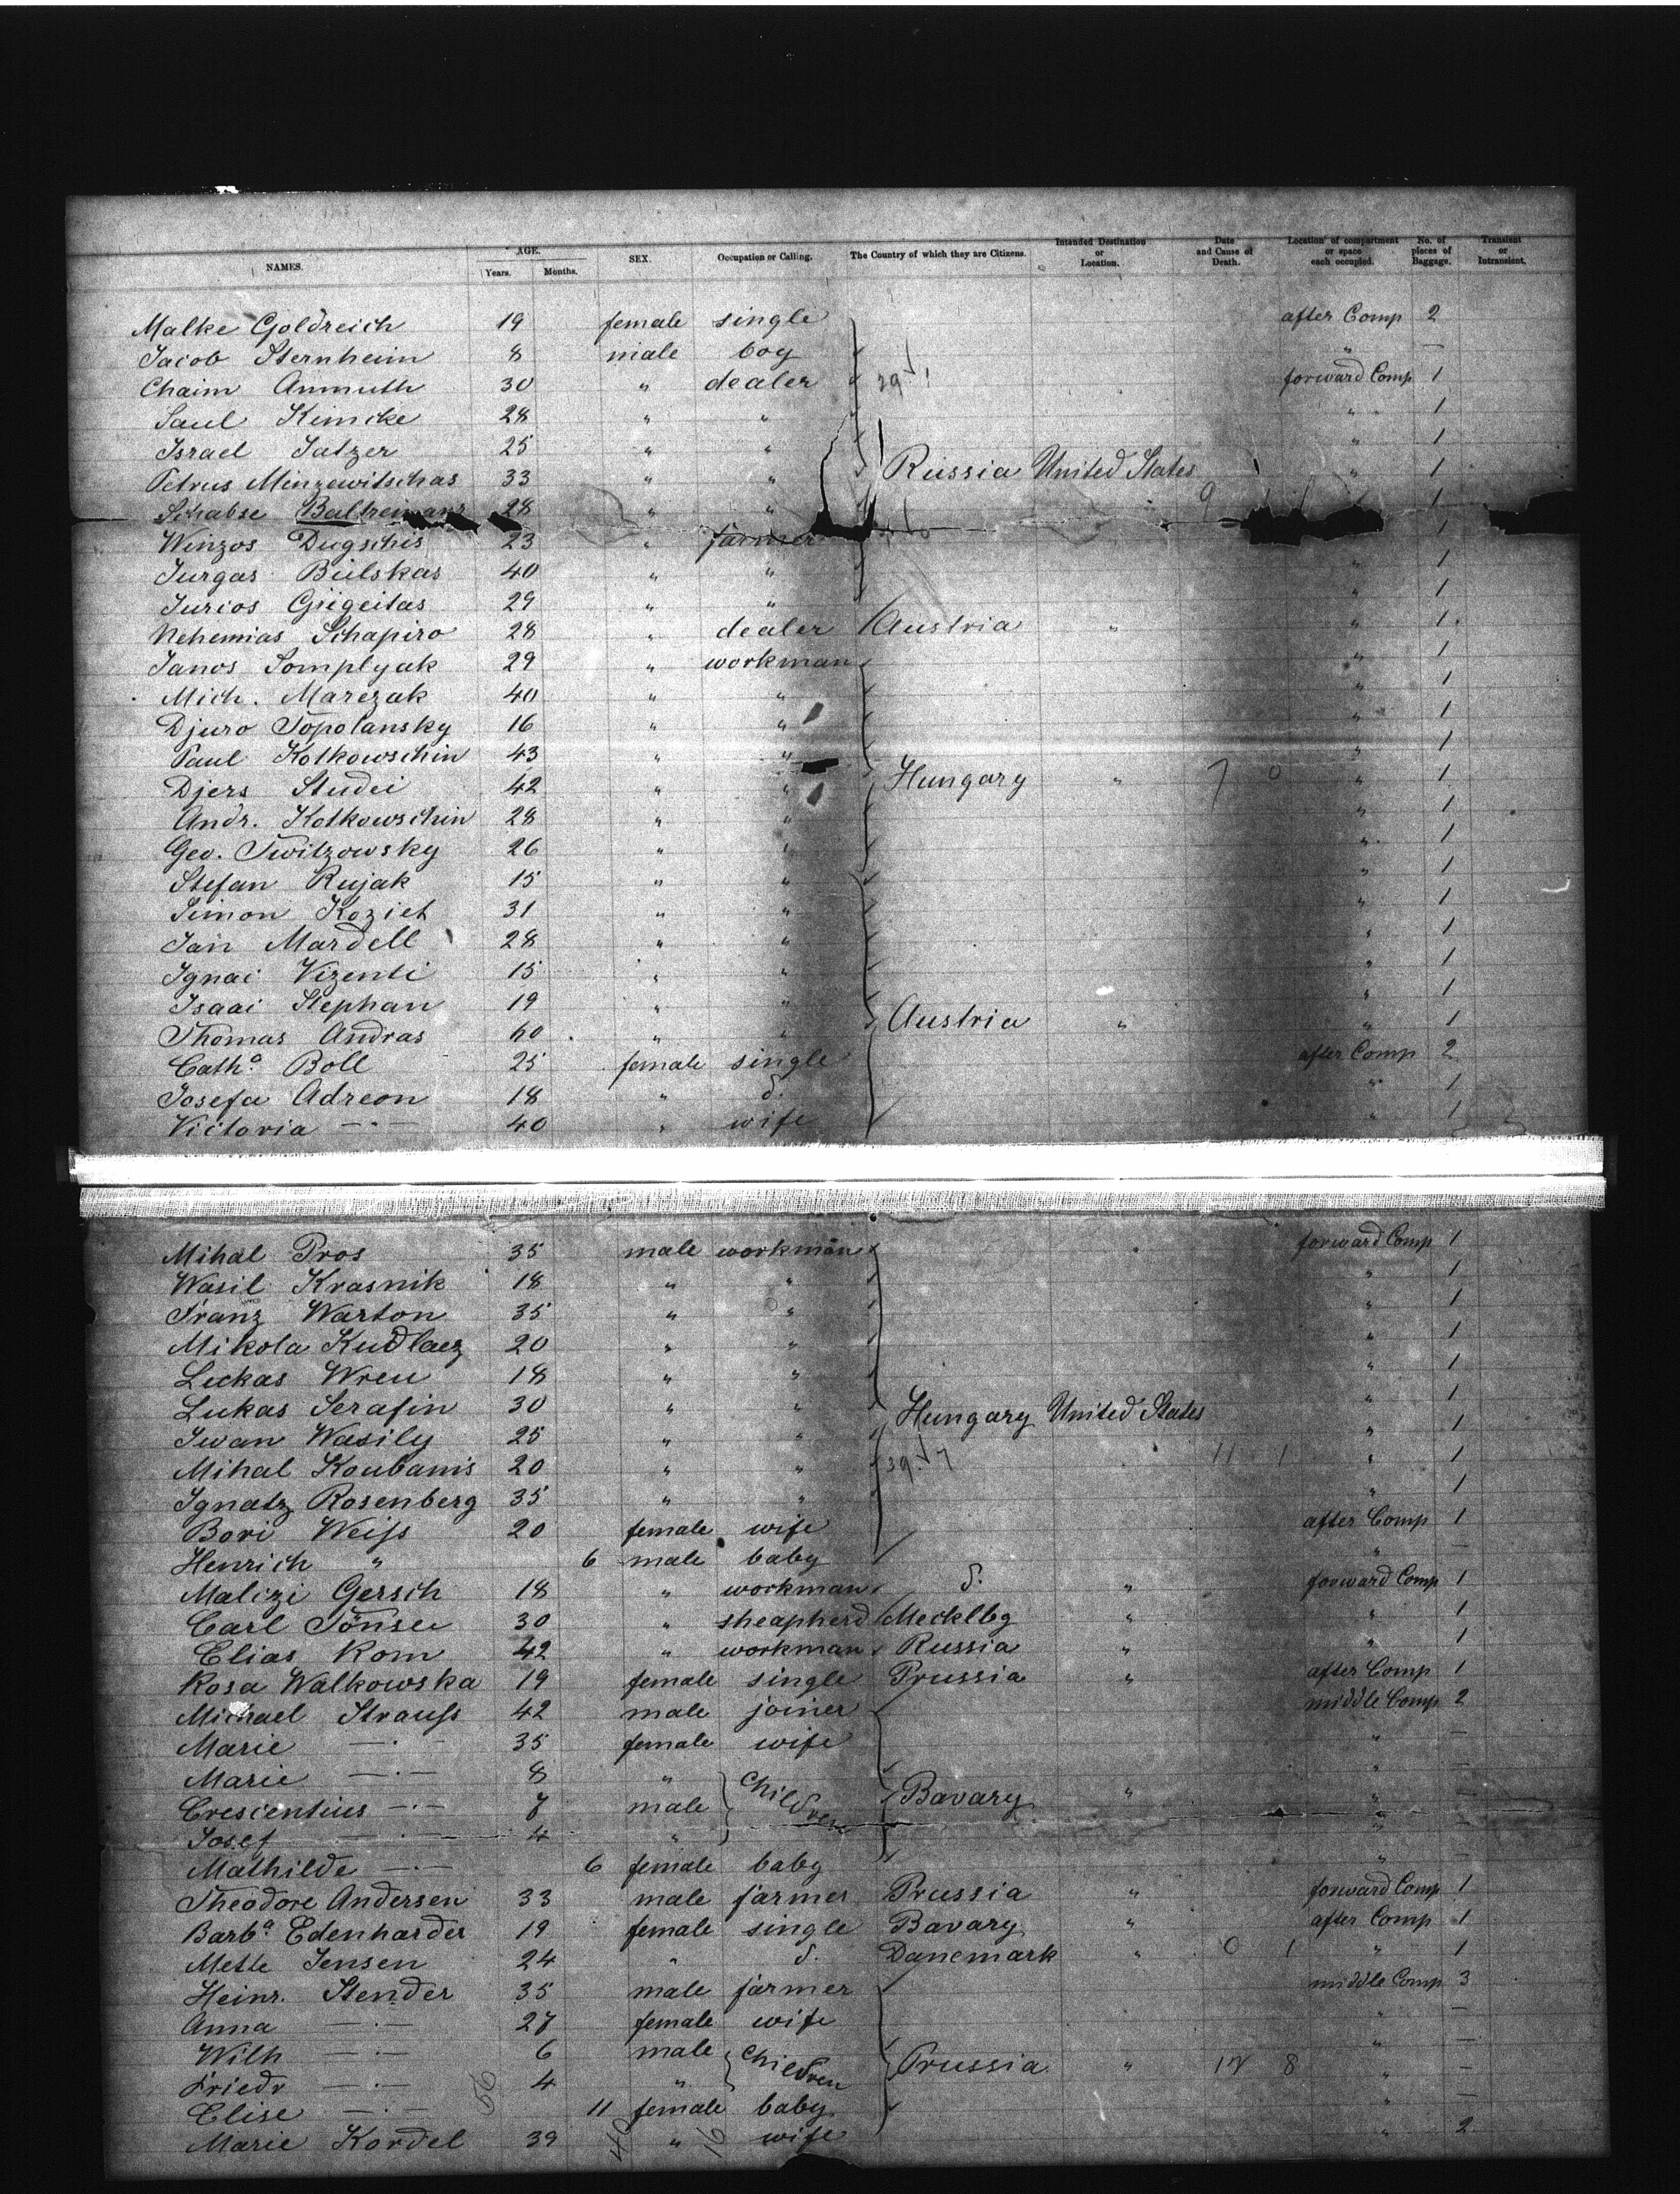 NAMES. AGE. Years. Months. SEX. Occupation or Calling. The Country of which they are Citizens. Intended Destination or Location. Date and Cause of Death. Location of compartment or space each occupied. No. of pieces of Baggage. Transient or Intransient.
Malke Goldreich 19 female single after Comp 2
Jacob Sternheim 8 male boy " —
Chaim Anmuth 30 " dealer forward Comp 1
Saul Kimcke 28 " " " 1
Israel Tatzer 25 " " " 1
Petrus Minzewitschas 33 " " Russia United States " 1
Schabse 28 " " 1
Winzos Dugschis 23 " farmer 1
Jurgas Bulskas 40 " " " 1
Jurios Grigeitas 29 " " " 1
Nehemias Schapiro 28 " dealer Austria " " 1
Janos Somplyak 29 " workman " 1
Mich. Marezak 40 " " " 1
Djuro Topolansky 16 " " " 1
Paul Kotkowschin 43 " " " 1
Djers Studei 42 " " Hungary " 7 0 " 1
Andr. Kotkowschin 28 " " " 1
Geo. Twitzowsky 26 " " " 1
Stefan Rujak 15 " " " 1
Simon Koziet 31 " " " 1
Jan Mardell 28 " " " 1
Ignai Vizenti 15 " " " 1
Isaai Stephan 19 " " " 1
Thomas Andras 60 " " Austria " " 1
Cath.a Boll 25 female single after Comp 2
Josefa Adreon 18 " d. " 1
Victoria —·— 40 " wife " 1
Mihal Pros 35 male workman forward Comp 1
Wasil Krasnik 18 " " " 1
Franz Warton 35 " " " 1
Mikola Kudlaez 20 " " " 1
Luckas Wreu 18 " " " 1
Lukas Serafin 30 " " Hungary United States " 1
Iwan Wasily 25 " " " 1
Mihal Koubanis 20 " " 39 7 11 1 " 1
Ignatz Rosenberg 35 " " " 1
Bori Weiss 20 female wife after Comp 1
Henrich " 6 male baby " —
Malizi Gersch 18 " workman d. " forward Comp 1
Carl Tönsee 30 " sheapherd Mecklbg " " 1
Elias Rom 42 " workman Russia " " 1
Rosa Walkowska 19 female single Prussia " after Comp 1
Michael Strauss 42 male joiner middle Comp 2
Marie —·— 35 female wife " —
Marie —·— 8 " Children " —
Crescentius —·— 7 male Bavary " " —
Josef —·— 4 " " —
Mathilde —·— 6 female baby " —
Theodore Andersen 33 male farmer Prussia " forward Comp 1
Barb.a Edenharder 19 female single Bavary " after Comp 1
Mette Jensen 24 " d. Danemark " 0 1 " 1
Heinr. Stender 35 male farmer middle Comp 3
Anna —·— 27 female wife " —
Wilh —·— 6 male Children Prussia " 17 8 " —
Friedr —·— 4 " " —
Elise —·— 11 female baby " —
Marie Kordel 39 " wife " 2
56 40 16